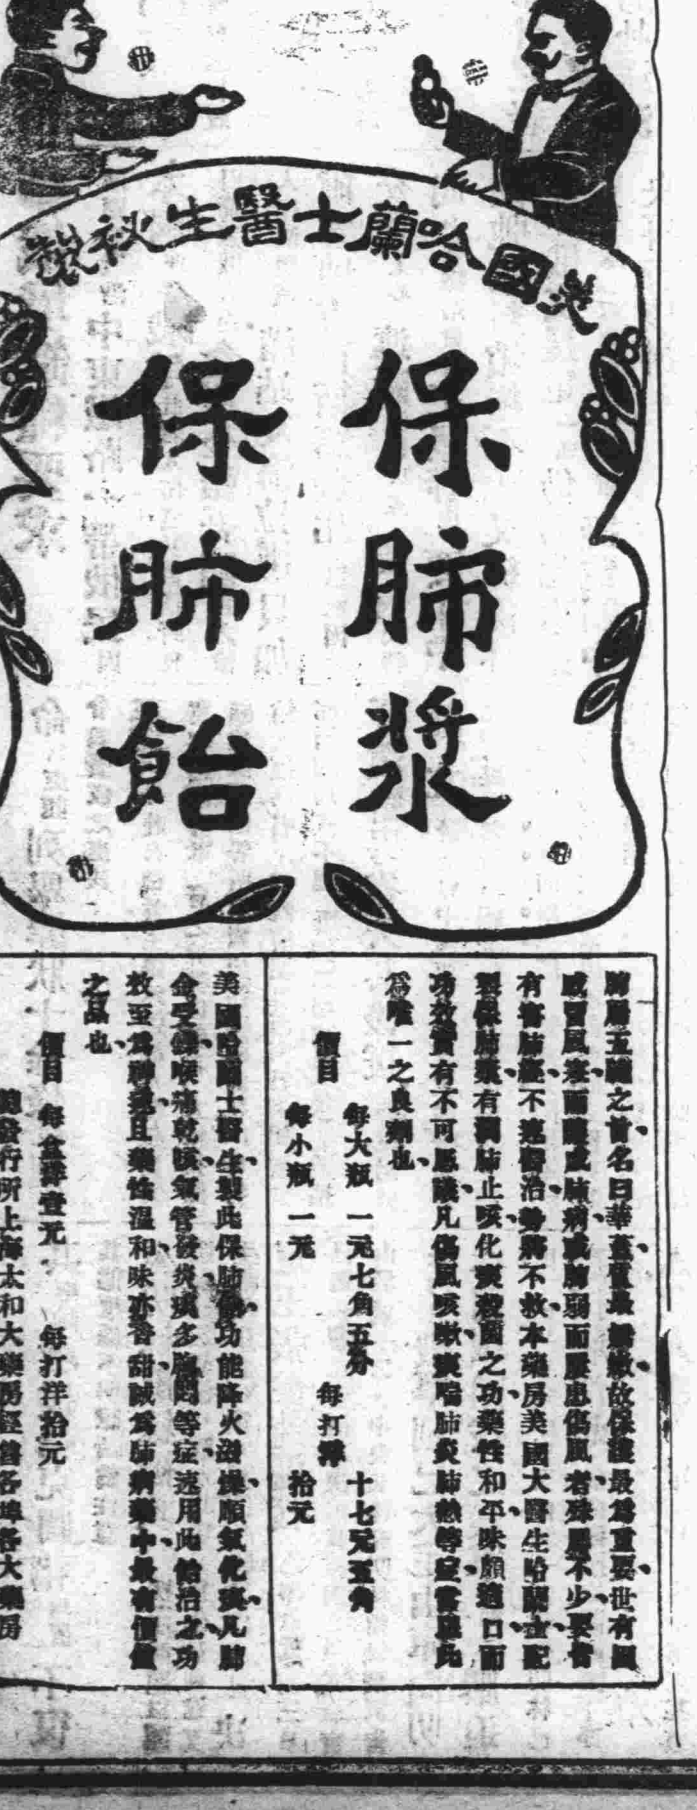 美國哈蘭士醫生秘製
保肺漿
保肺飴
肺居五臟之首名曰華蓋質最嬌嫩故保護最爲重要世有因
感冒風寒而釀成肺病或肺弱而屢患傷風者殊屬不少要皆
有害肺經不速醫治勢將不救本藥房美國大醫生哈蘭士配
製保肺漿有潤肺止咳化痰殺菌之功藥性和平味頗適口而
功效實有不可思議凡傷風咳嗽痰喘肺炎肺熱等症當以此
爲唯一之良劑也
價目
每大瓶 一元七角五分
每小瓶 一元
每打洋
十七元五角
拾元
美國哈蘭士醫生製此保肺飴功能降火潤燥順氣化痰凡肺
金受傷喉痛乾咳氣管發炎痰多胸悶等症速用此飴治之功
效至爲神速且藥性溫和味亦香甜誠爲肺病藥中最有價值
之品也
價目 每盒洋壹元 每打洋拾元
總發行所上海太和大藥房經售各埠各大藥房